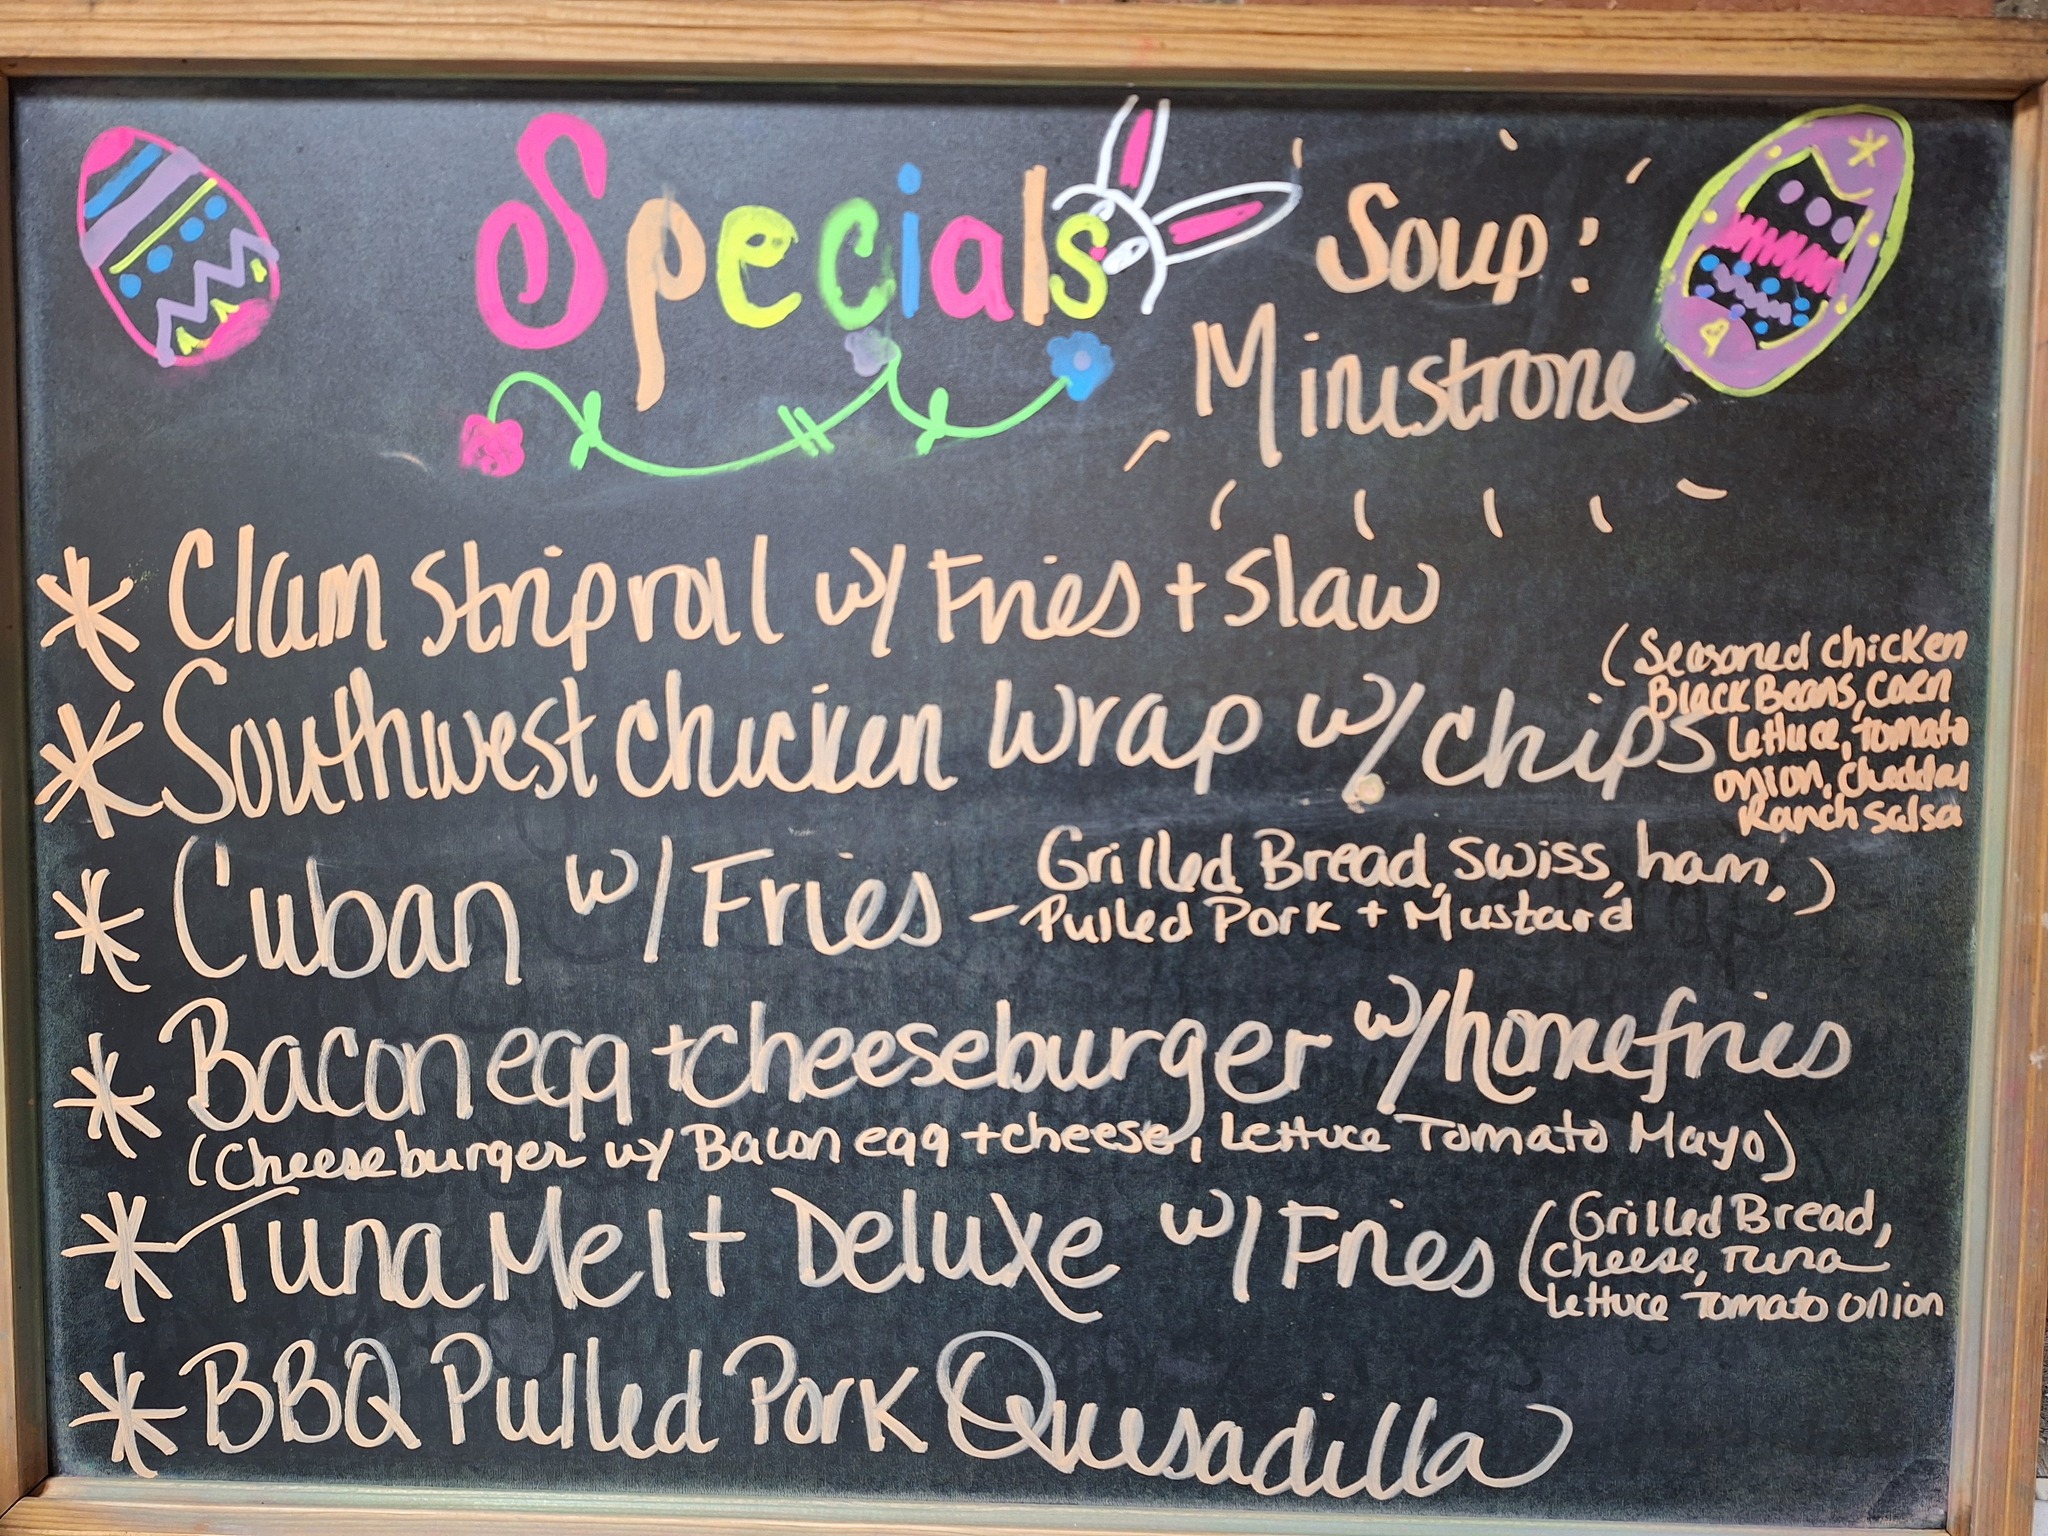 Specials
Soup:
Ministrone
* Clam Strip roll w/ Fries + Slaw
* Southwest chicken Wrap w/ chips
(Seasoned chicken
Black Beans, corn
lettuce, tomato
onion, cheddar
Ranch salsa
* Cuban w/ Fries - Grilled Bread, swiss, ham,)
Pulled Pork + Mustard
* Bacon egg + cheeseburger w/ homefries
(Cheeseburger w/ Bacon egg + cheese, Lettuce Tomato Mayo)
* Tuna Melt Deluxe w/ Fries (Grilled Bread,
Cheese, Tuna
Lettuce Tomato onion
* BBQ Pulled Pork Quesadilla